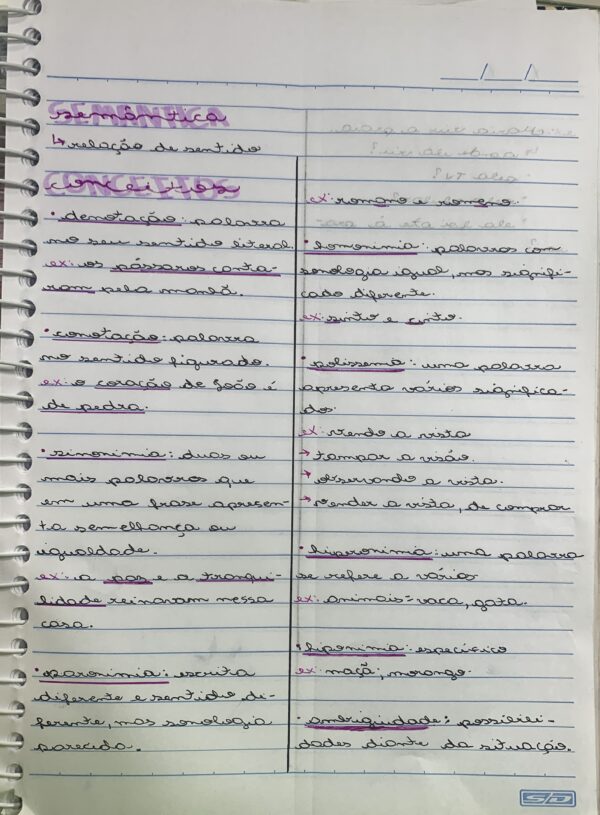 SEMÂNTICA
semântica
↳ relação de sentido
CONCEITOS
conceitos
• denotação: palavra
no seu sentido literal.
ex: os pássaros canta-
ram pela manhã.
• conotação: palavra
no sentido figurado.
ex: o coração de João é
de pedra.
• sinonimia: duas ou
mais palavras que
em uma frase apresen-
ta semelhança ou
igualdade.
ex: a paz e a tranqui-
lidade reinavam nessa
casa.
• paronimia: escrita
diferente e sentido di-
ferente, mas sonologia
parecida.
ex: romano e romeno.
• homonimia: palavras com
sonologia igual, mas signifi-
cado diferente.
ex: sinto e cinto.
• polissemia: uma palavra
apresenta vários significa-
dos.
ex: vendo a vista
→ tampar a visão.
→ observando a vista.
→ vender a vista, de comprar
• hiperonimia: uma palavra
se refere a vários.
ex: animais = vaca, gata.
• hiponimia: específico
ex: maçã; morango.
• ambigüidade: possibili-
dades diante da situação.
SD